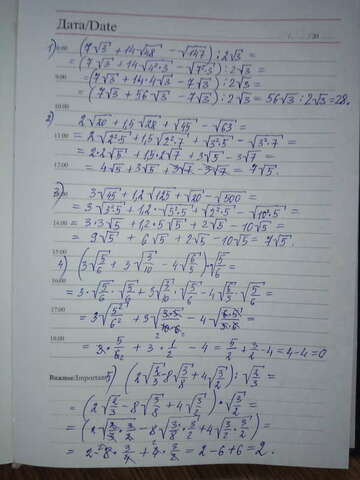 Дата/Date
1) (7√3 + 14√48 − √147) : 2√3 =
= (7√3 + 14√4²·3 − √7²·3) : 2√3 =
= (7√3 + 14·4√3 − 7√3) : 2√3 =
= (7√3 + 56√3 − 7√3) : 2√3 = 56√3 : 2√3 = 28.
2) 2√20 + 1,5√28 + √45 − √63 =
= 2√2²·5 + 1,5√2²·7 + √3²·5 − √3²·7 =
= 2·2√5 + 1,5·2√7 + 3√5 − 3√7 =
= 4√5 + 3√5 + 3√7 − 3√7 = 7√5.
3) 3√45 + 1,2√125 + √20 − √500 =
= 3√3²·5 + 1,2·√5²·5 + √2²·5 − √10²·5 =
= 3·3√5 + 1,2·5√5 + 2√5 − 10√5 =
= 9√5 + 6√5 + 2√5 − 10√5 = 7√5.
4) (3√5/6 + 3√3/10 − 4√6/5)·√5/6 =
= 3·√5/6·√5/6 + 3√3/10·√5/6 − 4√6/5·√5/6 =
= 3√5²/6² + 3√3·5/10·6 − 4√6·5/5·6 =
= 3·5/6 + 3·1/2 − 4 = 5/2 + 3/2 − 4 = 4 − 4 = 0
Важно/Important
5) (2√2/3 − 8√3/8 + 4√3/2) : √2/3 =
= (2√2/3 − 8√3/8 + 4√3/2)·√3/2 =
= (2√2/3·3/2 − 8√3/8·3/2 + 4√3/2·3/2) =
= 2 − 8·3/4 + 4·3/2 = 2 − 6 + 6 = 2.
8:00
9:00
10:00
11:00
12:00
14:00
15:00
16:00
17:00
18:00